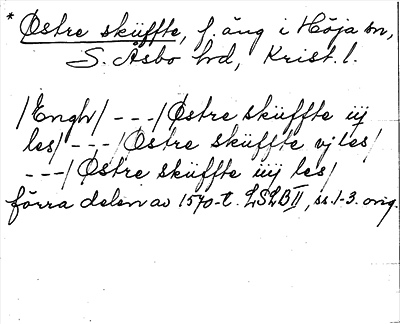 * Østre sküffte, f. äng i Höja sn,
S. Åsbo hd, Krist. l.
/Enghr/ ---/ Østre sküffte iij
les/ ---/ Østre sküffte vj les/
---/ Østre sküffte iiij les/
förra delen av 1570-t. LSLB II, ss. 1-3. orig.